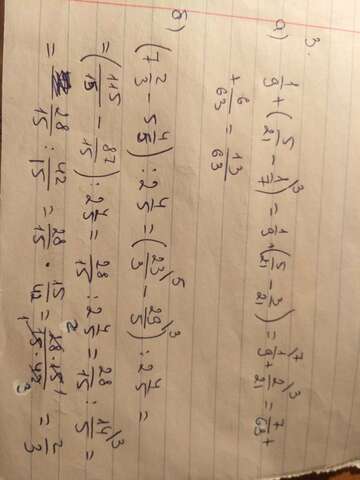 3.
а) 1/9 + (5/21 - 1/7) = 1/9 + (5/21 - 3/21) = 1/9 + 2/21 = 7/63 +
+ 6/63 = 13/63
б)
(7 2/3 - 5 4/5) : 2 4/5 = (23/3 - 29/5) : 2 4/5 =
= (115/15 - 87/15) : 2 4/5 = 28/15 : 2 4/5 = 28/15 : 14/5 =
= 28/15 : 42/15 = 28/15 · 15/42 = 28·15/15·42 = 2/3